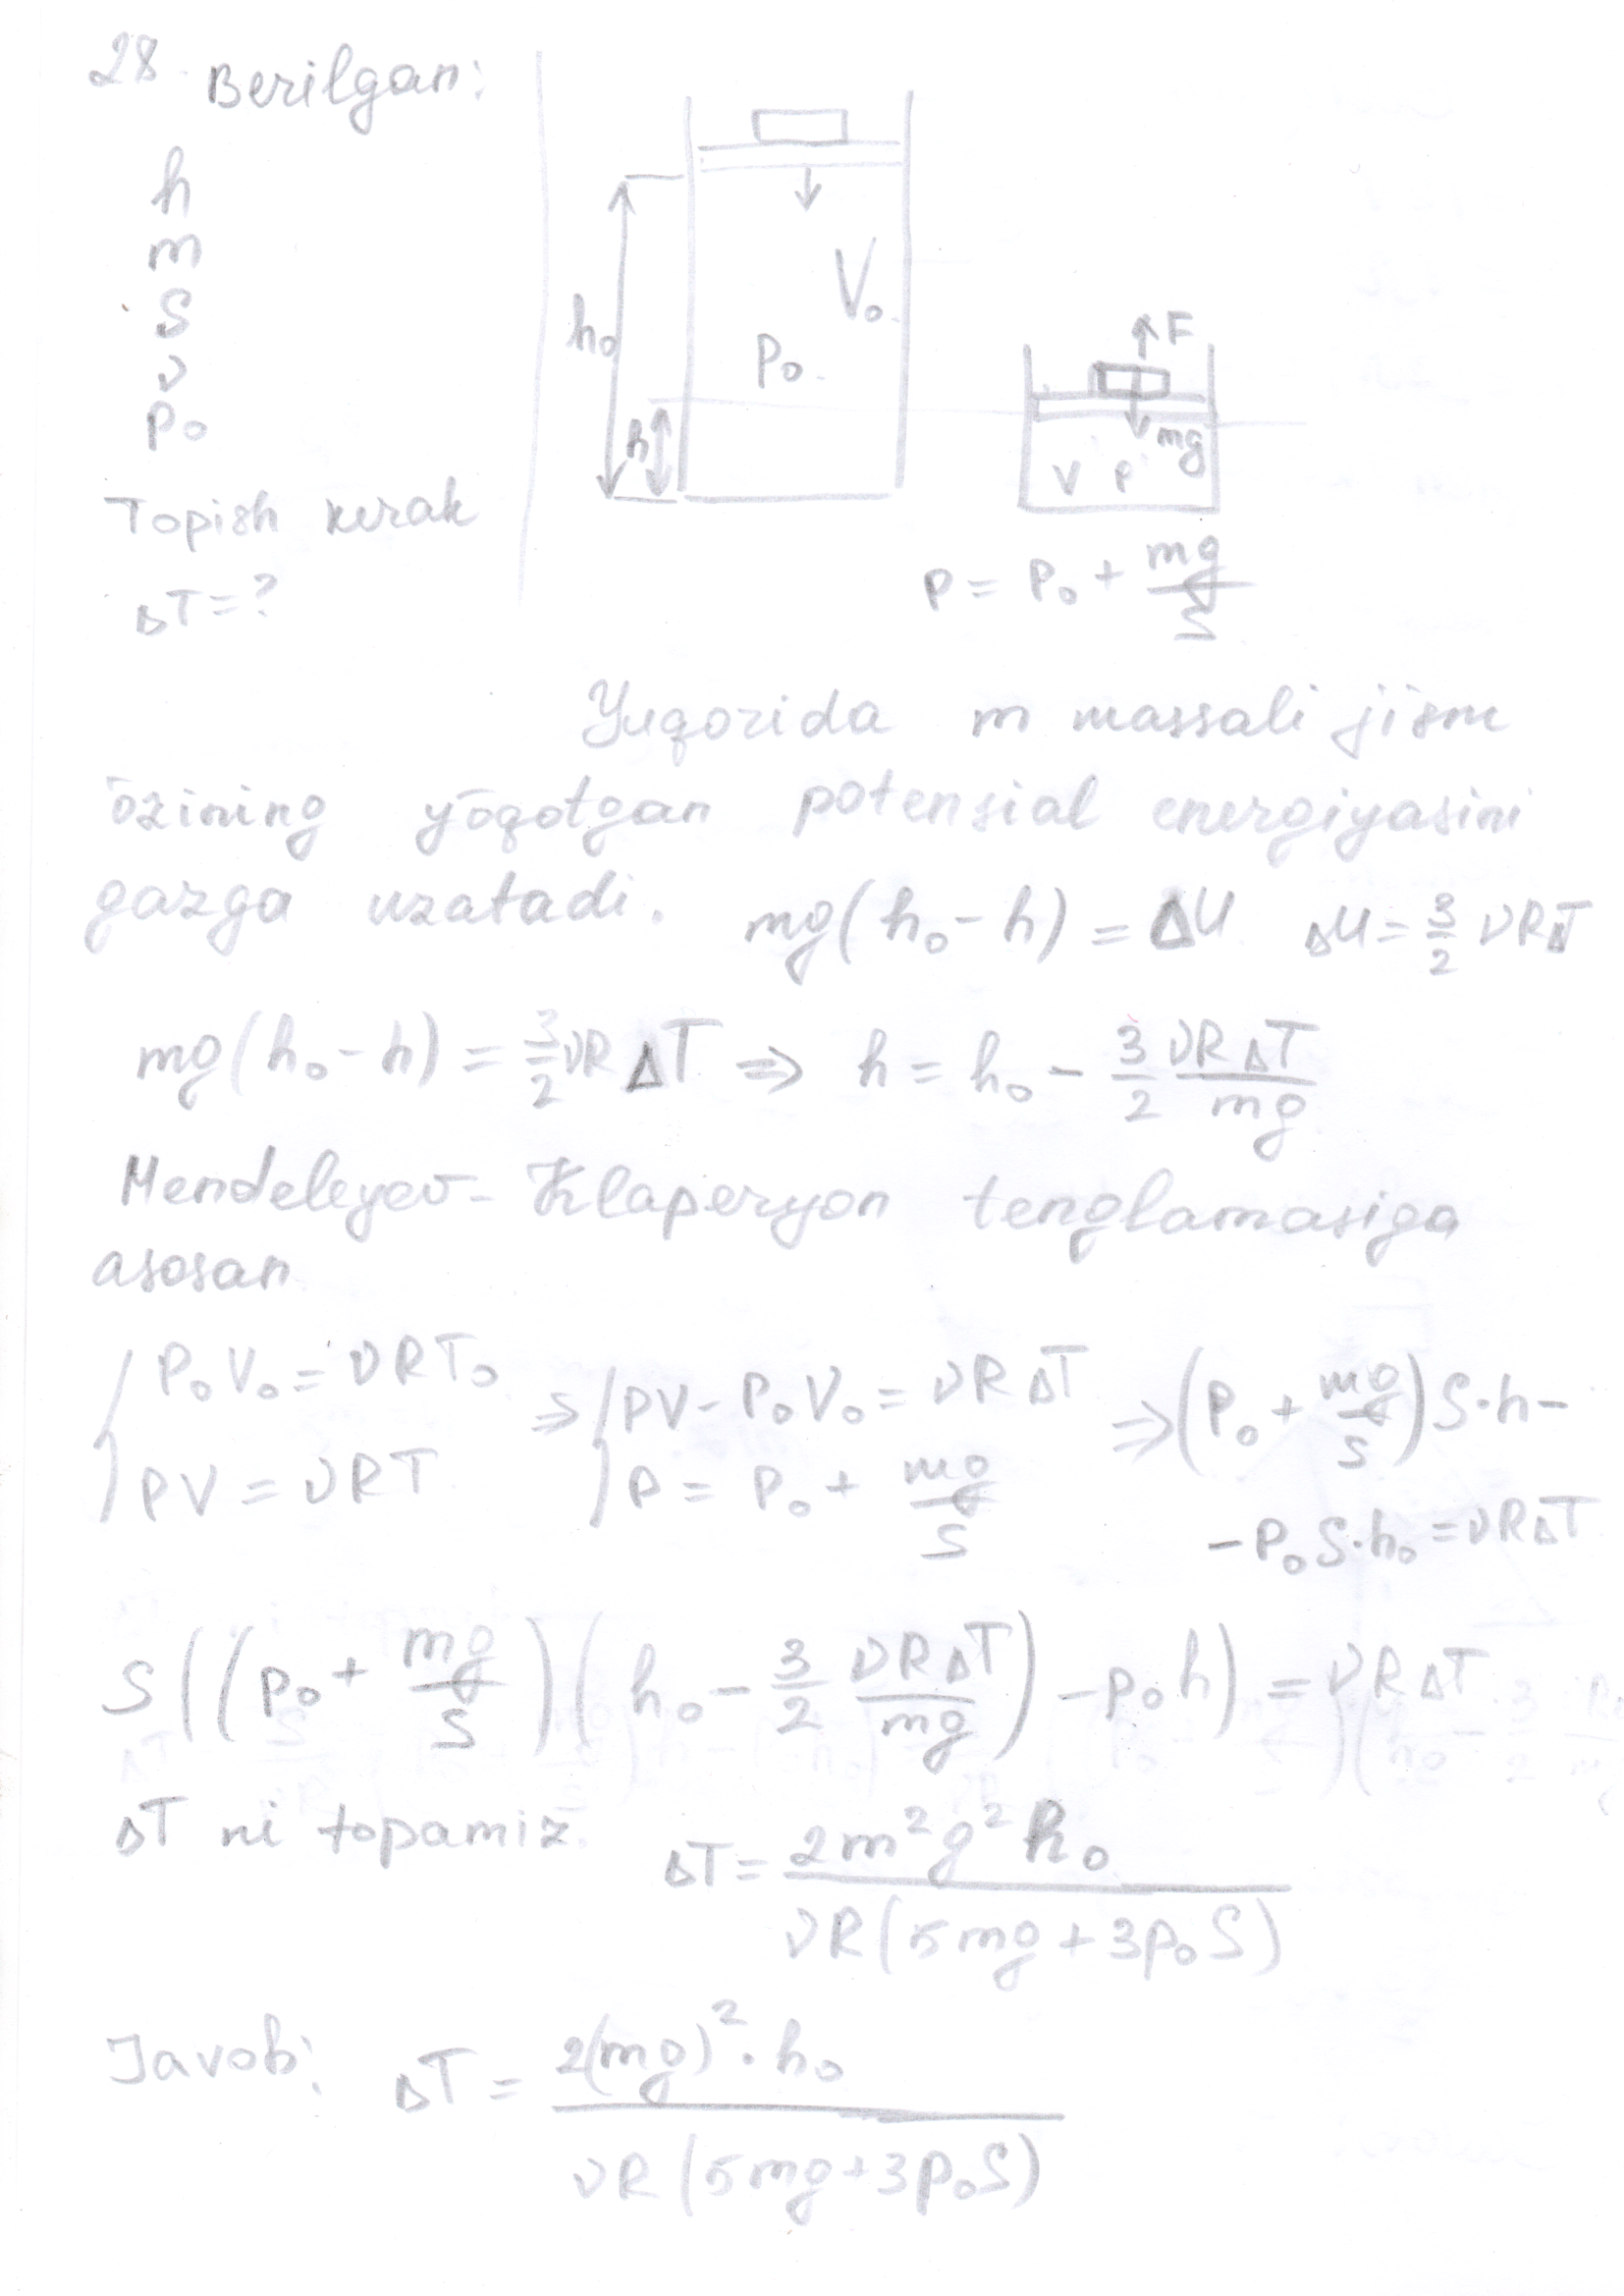 28. Berilgan:
h
m
S
ν
P₀
Topish kerak
ΔT=?
h₀
h
V₀
P₀
F
mg
V P
P = P₀ + mg/S
Yuqorida m massali jism
ōzining yōqotgan potensial energiyasini
gazga uzatadi. mg(h₀-h) = ΔU ΔU = 3/2 νRΔT
mg(h₀-h) = 3/2 νRΔT ⇒ h = h₀ - 3/2 νRΔT/mg
Mendeleyev-Klaperyon tenglamasiga
asosan
{ P₀V₀ = νRT₀ ⇒ { PV - P₀V₀ = νRΔT ⇒ (P₀ + mg/S) S·h -
PV = νRT P = P₀ + mg/S - P₀S·h₀ = νRΔT
S((P₀ + mg/S)(h₀ - 3/2 νRΔT/mg) - P₀h) = νRΔT
ΔT ni topamiz. ΔT = 2m²g²h₀ / νR(5mg + 3P₀S)
Javob: ΔT = 2(mg)²·h₀ / νR(5mg+3P₀S)